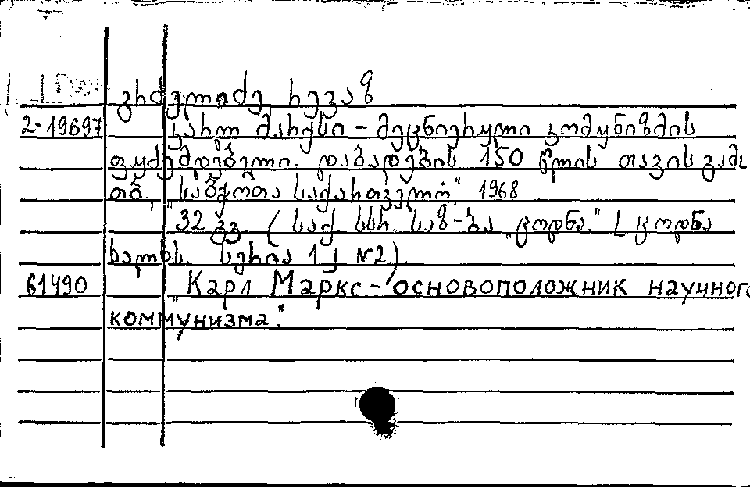 გრძელიძე რევაზ
2-19697 კარლ მარქსი - მეცნიერული კომუნიზმის
ფუძემდებელი. დაბადების 150 წლის თავის გამ.
თბ., "საბჭოთა საქართველო" 1968
32 გვ. (საქ. სსრ საზ-ბა "ცოდნა." [ცოდნა
ხალხს. სერია 1] №2)
61490 "Карл Маркс - основоположник научного
коммунизма."